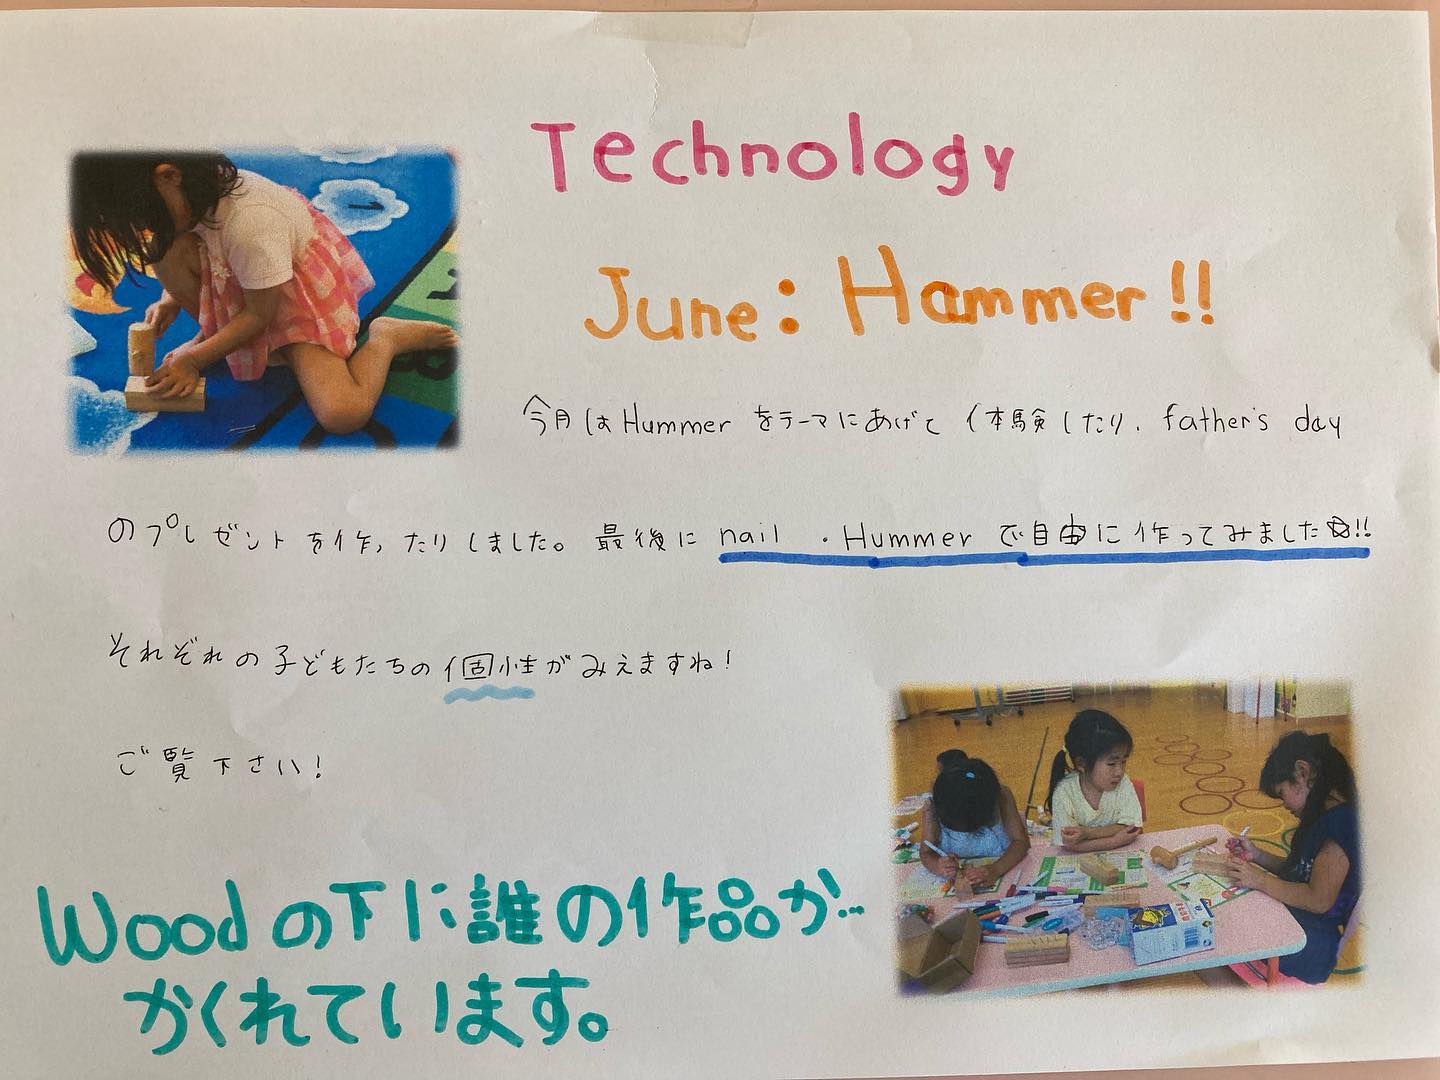 Technology
June: Hammer!!
今月はHummerをテーマにあげて体験したり、father's day
のプレゼントを作ったりしました。最後にnail・Hummerで自由に作ってみました☆!!
それぞれの子どもたちの個性がみえますね!
ご覧下さい!
Woodの下に誰の作品が…
かくれています。